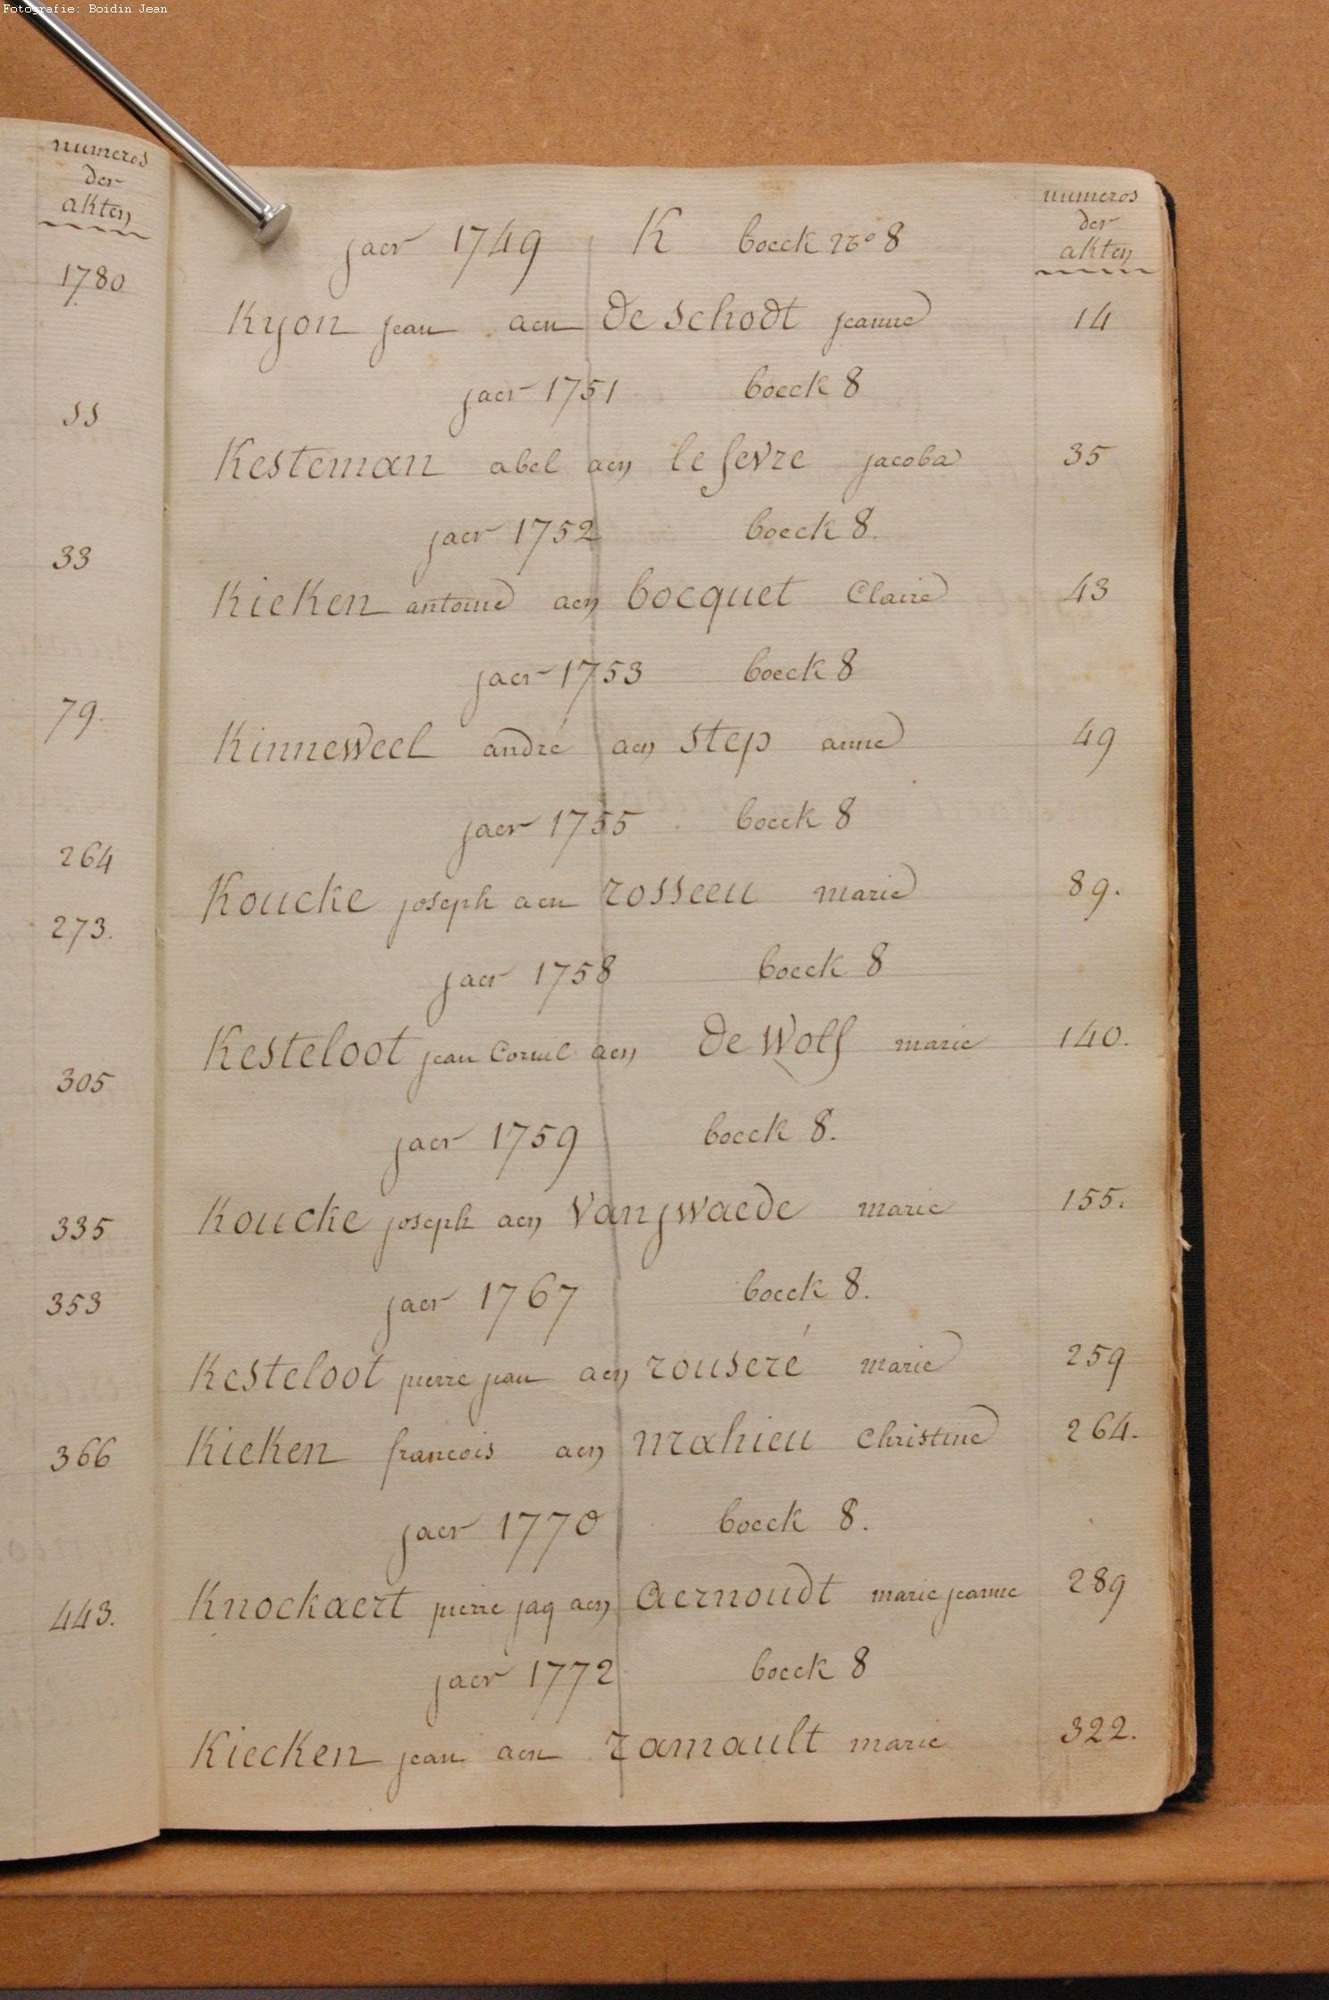 Fotografie: Boidin Jean
numeros
der
akten
1780
55
33
79.
264
273.
305
335
353
366
443.
numeros
der
akten
jaer 1749 K boeck no 8
Kyon jean aen De schodt jeanne 14
jaer 1751 boeck 8
Kesteman abel aen le fevre jacoba 35
jaer 1752 boeck 8.
Kieken antoine aen bocquet Claire 43
jaer 1753 boeck 8
Kinneweel andré aen step anne 49
jaer 1755 boeck 8
Koucke joseph aen rosseeu marie 89.
jaer 1758 boeck 8
Kesteloot jean Cornil aen De Wolf marie 140.
jaer 1759 boeck 8.
Koucke joseph aen Vanjwaede marie 155.
jaer 1767 boeck 8.
Kesteloot pierre jean aen rouseré marie 259
Kieken francois aen mahieu Christine 264.
jaer 1770 boeck 8.
Knockaert pierre jaq aen aernoudt marie jeanne 289
jaer 1772 boeck 8
Kiecken jean aen ramault marie 322.